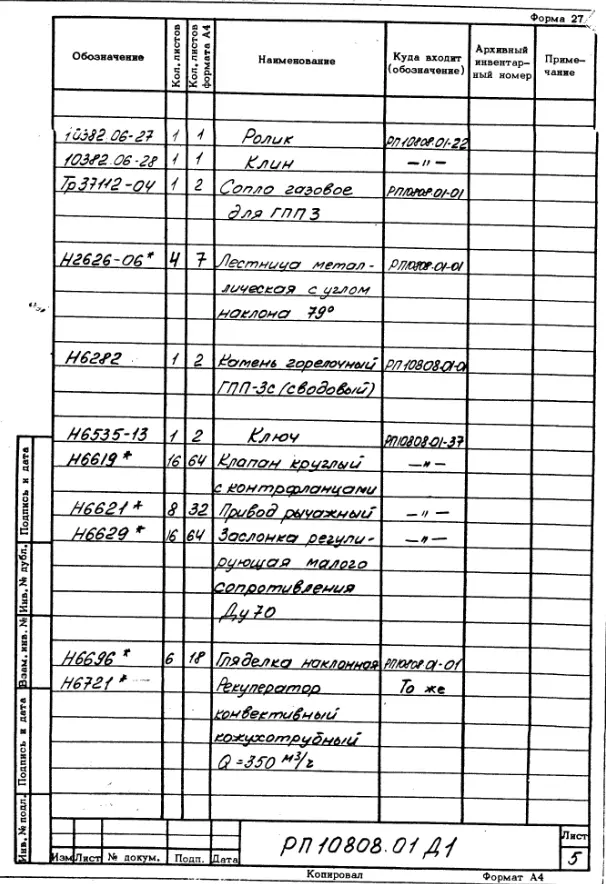 Форма 27
Обозначение | Кол. листов | Кол. листов формата А4 | Наименование | Куда входит (обозначение) | Архивный инвентарный номер | Примечание
10382.06-27 1 1 Ролик РП10808.01-22
10382.06-28 1 1 Клин —"—
Тр37112-04 1 2 Сопло газовое РП10808.01-01
для ГПП 3
Н2626-06* 4 7 Лестница метал- РП10808.01-01
лическая с углом
наклона 79°
Н6282 1 2 Камень горелочный РП10808.01-0
ГПП-3с (сводовый)
Н6535-13 1 2 Ключ РП10808.01-37
Н6619* 16 64 Клапан круглый —"—
с контрфланцами
Н6621* 8 32 Привод рычажный —"—
Н6629* 16 64 Заслонка регули- —"—
рующая малого
сопротивления
Ду 70
Н6696* 6 18 Гляделка наклонная РП10808.01-01
Н6721* Рекуператор То же
конвективный
кожухотрубный
Q=350 м³/г
Инв. № подл. Подпись и дата Взам. инв. № Инв. № дубл. Подпись и дата
РП10808.01 Д1
Лист
5
Изм Лист № докум. Подп. Дата
Копировал Формат А4